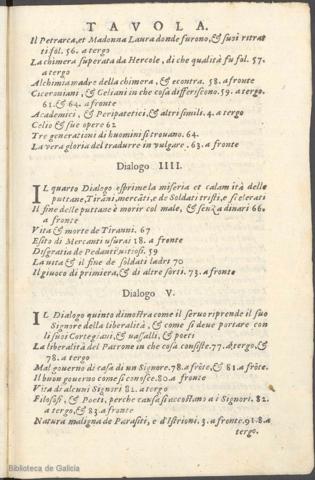 TAVOLA.
Il Petrarca, et Madonna Laura donde furono, & suoi ritrat
ti. fol. 56. a tergo
La chimera superata da Hercole, di che qualità fu fol. 57.
a tergo
Alchimia madre della chimera, & econtra. 58. a fronte
Ciceroniani, & Celiani in che cosa differiscono. 59. a tergo.
61. & 64. a fronte
Academici, & Peripatetici, & altri simili. 4. a tergo
Celio & sue opere 62
Tre generationi di huomini si trouano. 64.
La vera gloria del tradurre in vulgare. 63. a fronte
Dialogo IIII.
IL quarto Dialogo esprime la miseria et calamità delle
puttane, Tirāni, mercāti, e de Soldati tristi, e scelerati
Il fine delle puttane è morir col male, & senza dinari 66.
a fronte
Vita & morte de Tiranni. 67
Esito di Mercanti usurai 18. a fronte
Disgratia de Pedanti uitiosi. 59
La uita & il fine de soldati ladri 70
Il giuoco di primiera, & di altre sorti. 73. a fronte
Dialogo V.
IL Dialogo quinto dimostra come il seruo riprende il suo
Signore della liberalità, & come si deue portare con
li suoi Cortegiani, & uassalli, & poeti
La liberalità del Patrone in che cosa consiste. 77. a tergo, &
78. a tergo
Mal gouerno di casa di un Signore. 78. a frōte, & 81. a frōte.
Il buon gouerno come si conosce. 80. a fronte
Vita di alcuni Signori 82. a tergo
Filosofi, & Poeti, perche causa si accostano a i Signori. 82.
a tergo, & 83. a fronte
Natura maligna de Parasiti, e d'Istrioni. 3. a fronte. 91. 8. a
tergo.
Biblioteca de Galicia